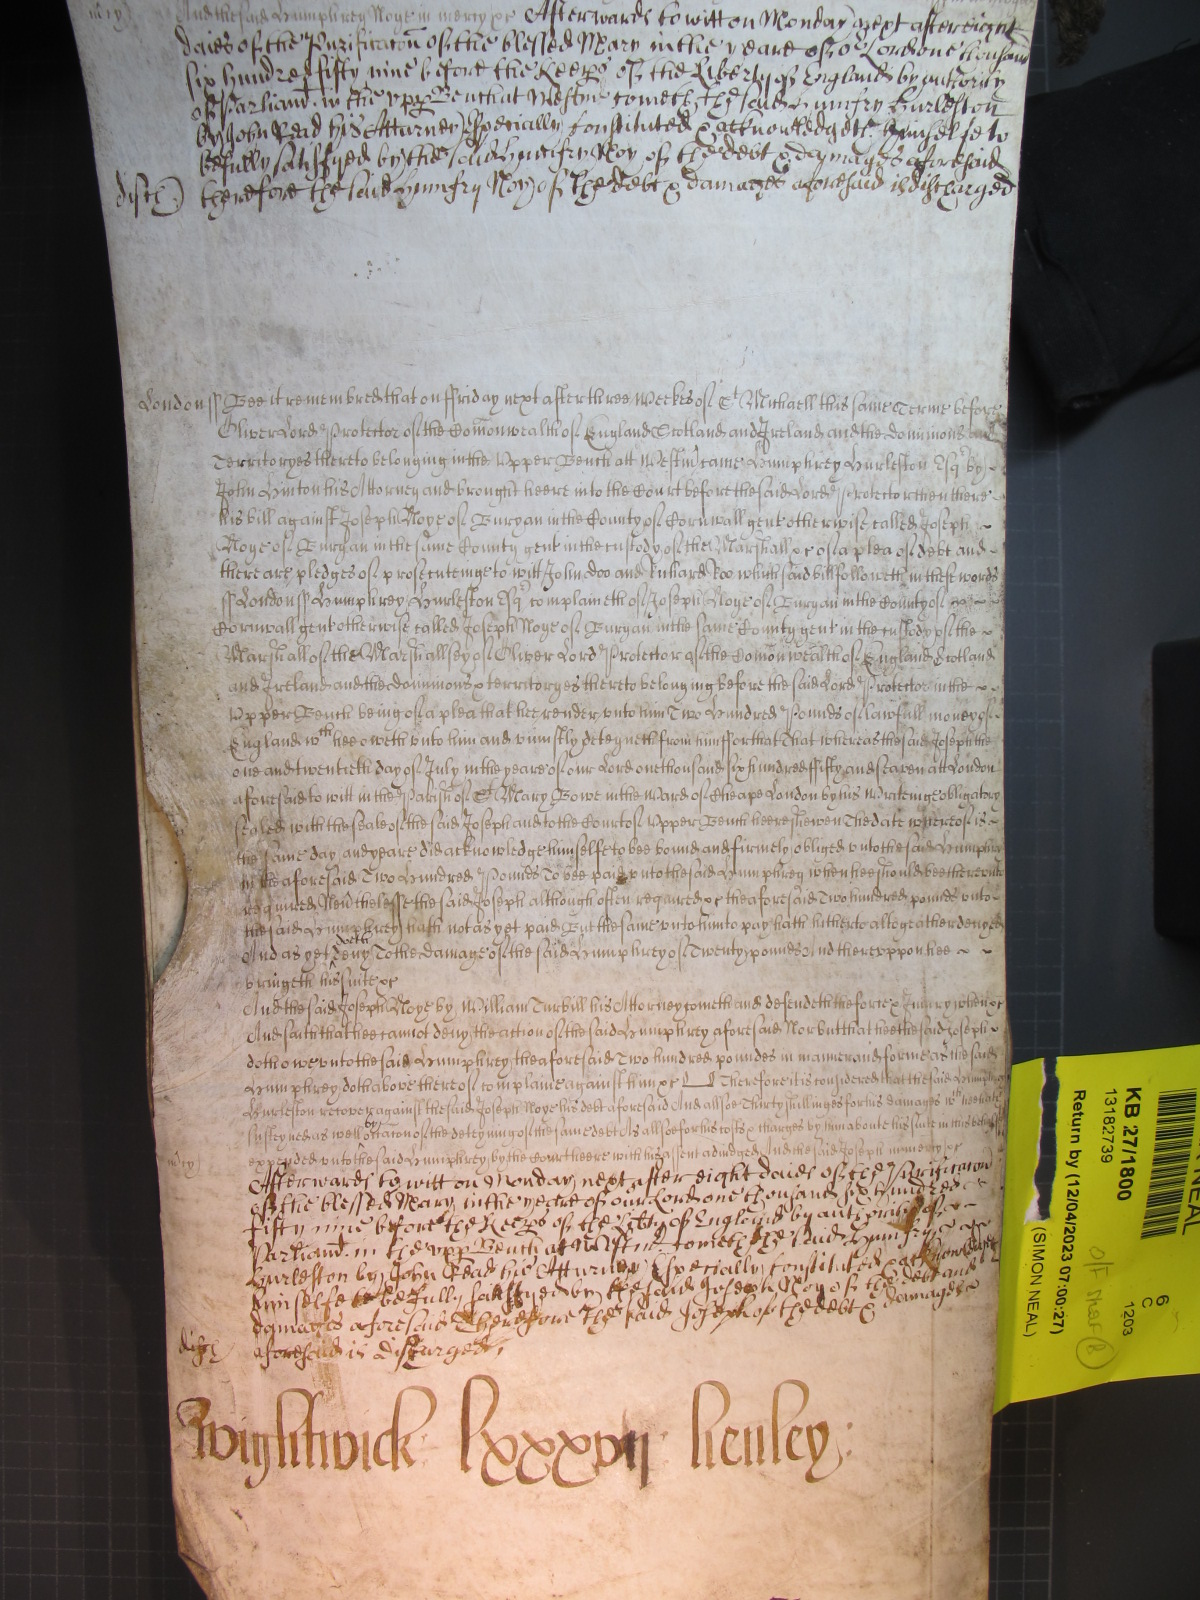 m͞cy) And the said Humphrey Noye in mercy &c Afterwards to witt on Monday next after eight
daies of the Purification of the blessed Mary in the yeare of or Lord one thousand
six hundred fifty nine before the Keeps of the Libertyes of England by authority
of Parliamt. in the vpp Bench at Westmr cometh the said Humfry Hurleston
by John Read his Atturney specially constituted & acknowledgeth himselfe to
be fully satisfyed by the said Humfry Noy of the debt & damages aforesaid
disch) therefore the said Humfry Noy of the debt & damages aforesaid is discharged
London ss Bee it remembred that on ffriday next after three weekes of St Michaell this same Terme before
Oliver Lord Protector of the Comonwealth of England Scotland and Ireland and the dominions and
Territoryes thereto belonging in the Vpper Bench att Westmr came Humphrey Hurleston Esqr by
John Hinton his Attorney and brought heere into the Court before the said Lord Protector then there
his bill against Joseph Noye of Buryan in the County of Cornwall gent otherwise called Joseph
Noye of Buryan in the same County gent in the custody of the Marshall &c of a plea of debt and
there are pledges of prosecuteinge to witt John Doo and Richard Roo which said bill followeth in these words
ss London ss Humphrey Hurleston Esqr complaineth of Joseph Noye of Buryan in the County of
Cornwall gent otherwise called Joseph Noye of Buryan in the same County gent in the custody of the
Marshall of the Marshallsey of Oliver Lord Protector of the Comonwealth of England Scotland
and Ireland and the dominions & territoryes thereto belonging before the said Lord Protector in the
Vpper Bench being of a plea that hee render vnto him Two Hundred Pounds of lawfull money of
England wch hee oweth vnto him and vniustly deteyneth from him ffor that That whereas the said Joseph the
one and twentieth day of July in the yeare of our Lord one thousand six hundred ffifty and seaven att London
aforesaid to witt in the Parish of St Mary Bowe in the Ward of Cheape London by his Writeinge obligatory
sealed with the seale of the said Joseph and to the Court of Vpper Bench heere shewen The date whereof is
the same day and yeare did acknowledge himselfe to bee bound and firmely obliged vnto the said Humphrey
in the aforesaid Two Hundred Pounds To bee paid vnto the said Humphrey when hee should bee therevnto
required Neverthelesse the said Joseph although often required &c the aforesaid Two hundred pounds vnto
the said Humphrey hath not as yet paid But the same vnto him to pay hath hitherto altogeather denyed
And as yet doth deny To the damage of the said Humphrey of Twenty pounds And therevppon hee
bringeth his suite &c
And the said Joseph Noye by William Turbill his Attorney cometh and defendeth the force & Iniury when &c
And saith that hee cannot deny the action of the said Humphrey aforesaid Nor but that hee the said Joseph
doth owe vnto the said Humphrey the aforesaid Two hundred poundes in manner and forme as the said
Humphrey doth above thereof complaine against him &c Therefore it is considered that the said Humphrey
Hurleston recover against the said Joseph Noye his debt aforesaid And allsoe Thirty shillinges for his damages wch hee hath
susteyned as well by occasion of the deteyning of the same debt As allsoe for his costs & charges by him about his suite in this behalfe
m͞cy) expended vnto the said Humphrey by the Court heere with his assent adiudged And the said Joseph in mercy &c
Afterwards to witt on Monday next after eight daies of the Purification
of the blessed Mary in the yeare of our Lord one thousand six hundred
fifty nine before the Keeps of the Liberty of England by authority of
Parliamt. in the vpp Bench at Westmr cometh the said Humfry
Hurleston by John Read his Atturney specially constituted & acknowledgeth
himselfe to be fully satisfyed by the said Joseph Noy of the debt and
damages aforesaid Therefore the said Joseph of the debt & damages
disch) aforesaid is discharged
Wightwick lxxxvij henley:
NEAL
KB 27/1800
13182739
Return by (12/04/2023 07:00:27)
(SIMON NEAL)
6
C
1203